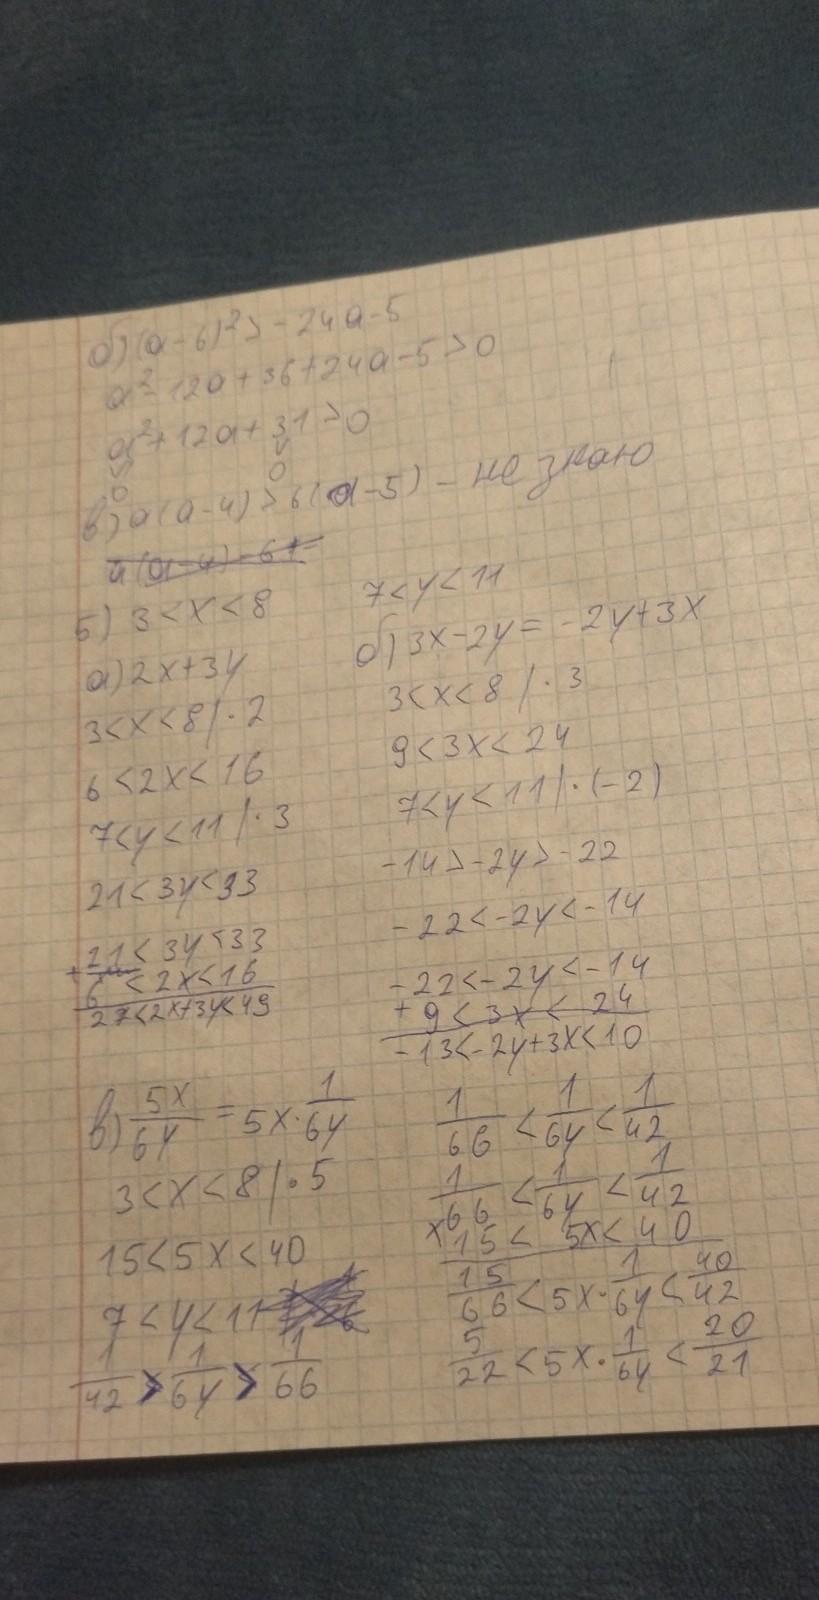 б) (a-6)² > -24a-5
a²-12a+36+24a-5>0
a²+12a+31>0
0 0
в) a(a-4)>6(a-5) - не знаю
5) 3<x<8 7<y<11
а) 2x+3y
3<x<8 | ·2
6<2x<16
7<y<11 | ·3
21<3y<33
21<3y<33
+ 6<2x<16
27<2x+3y<49
б) 3x-2y=-2y+3x
3<x<8 | ·3
9<3x<24
7<y<11 | ·(-2)
-14>-2y>-22
-22<-2y<-14
-22<-2y<-14
+ 9<3x<24
-13<-2y+3x<10
в) 5x/6y = 5x · 1/6y
3<x<8 | ·5
15<5x<40
7<y<11
1/42 > 1/6y > 1/66
1/66 < 1/6y < 1/42
1/66 < 1/6y < 1/42
x 15 < 5x < 40
15/66 < 5x · 1/6y < 40/42
5/22 < 5x · 1/6y < 20/21